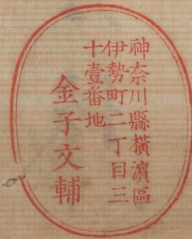 神奈川縣橫濱區
伊勢町二丁目三
十壹番地
金子文輔